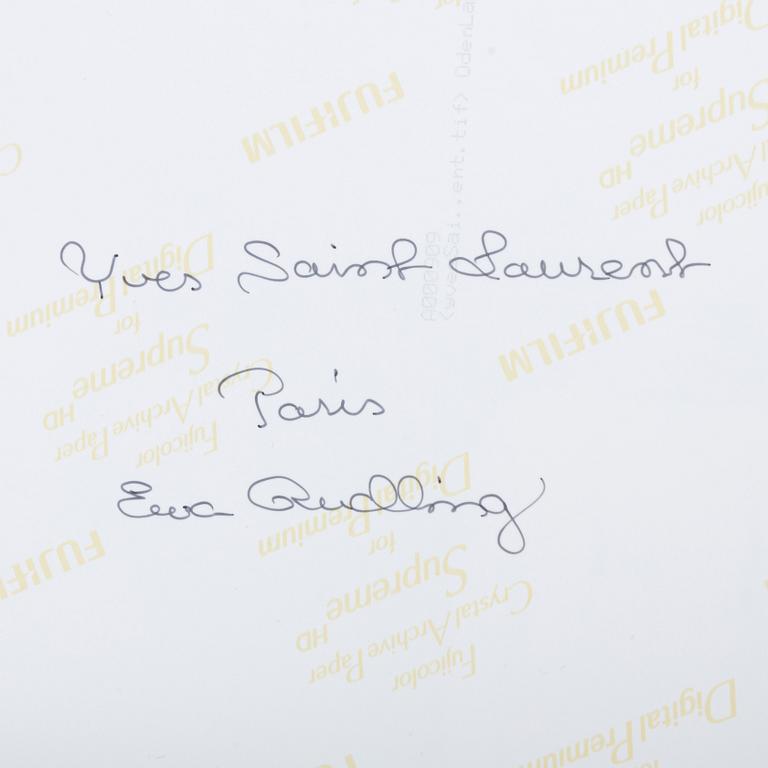 Yves Saint Laurent
Paris
Ewa Rudling
FUJIFILM
Digital Premium
for
Supreme
HD
Crystal Archive Paper
Fujicolor
Digital Premium
for
Supreme
HD
Crystal Archive Paper
Fujicolor
FUJIFILM
Digital Premium
for
Supreme
HD
Crystal Archive Paper
Fujicolor
FUJIFILM
Digital Premium
for